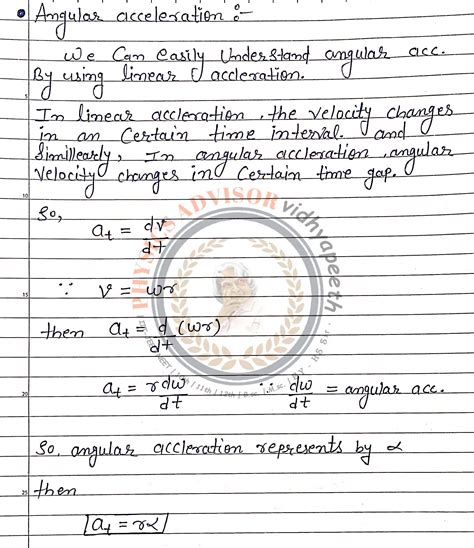 Angular acceleration :-
We Can easily Understand angular acc.
By using linear acceleration.
5
In linear accleration, the velocity changes
in an Certain time interval. and
Simillearly, In angular accleration, angular
Velocity changes in Certain time gap.
10
So,
a_t = dv/dt
15
∵ v = ωr
then a_t = d/dt (ωr)
20
a_t = r dω/dt ∵ dω/dt = angular acc.
So, angular accleration represents by α
25
then
a_t = rα
PHYSICS ADVISOR vidhyapeeth